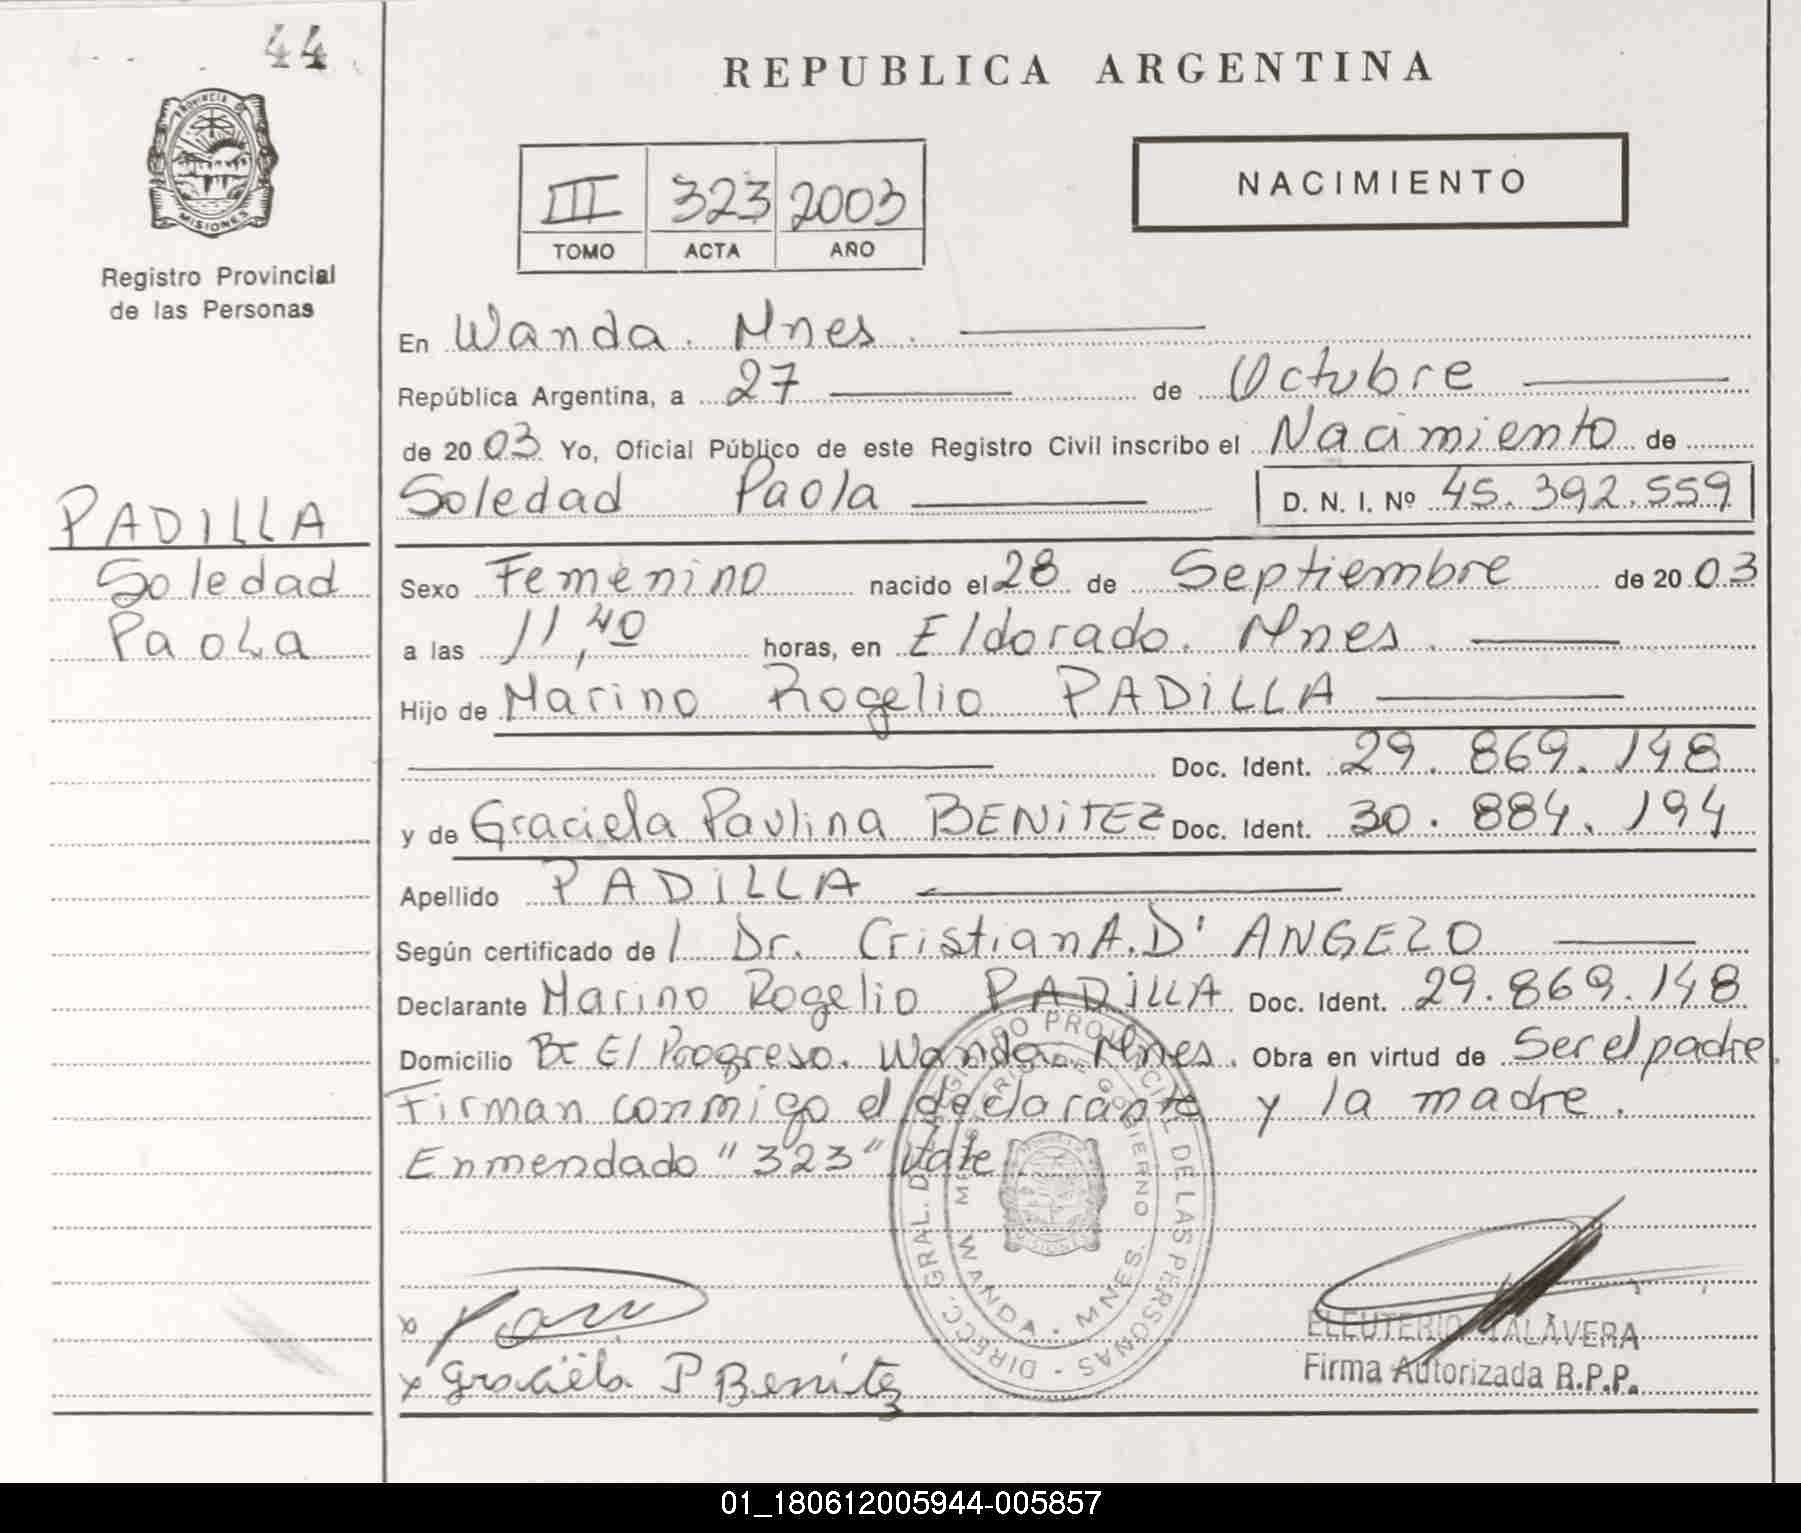 44
PROVINCIA DE
MISIONES
Registro Provincial
de las Personas
PADILLA
Soledad
Paola
REPUBLICA ARGENTINA
III 323 2003
TOMO ACTA AÑO
NACIMIENTO
En Wanda. Mnes.
República Argentina, a 27 de Octubre
de 2003 Yo, Oficial Público de este Registro Civil inscribo el Nacimiento de
Soledad Paola D. N. I. Nº 45.392.559
Sexo Femenino nacido el 28 de Septiembre de 2003
a las 11,40 horas, en Eldorado. Mnes.
Hijo de Marino Rogelio PADiLLA
Doc. Ident. 29.869.148
y de Graciela Paulina BENiTEZ Doc. Ident. 30.884.194
Apellido PADiLLA
Según certificado de / Dr. Cristian A. D' ANGELO
Declarante Marino Rogelio PADiLLA Doc. Ident. 29.869.148
Domicilio Bº El Progreso. Wanda. Mnes. Obra en virtud de Ser el padre.
Firman conmigo el declarante y la madre.
Enmendado "323" Vale
DIRECC. GRAL. DEL REGISTRO PROVINCIAL DE LAS PERSONAS
MINISTERIO DE GOBIERNO
WANDA - MNES.
MISIONES
x
x Graciela P Benitez
ELEUTERIO TALAVERA
Firma Autorizada R.P.P.
01_180612005944-005857